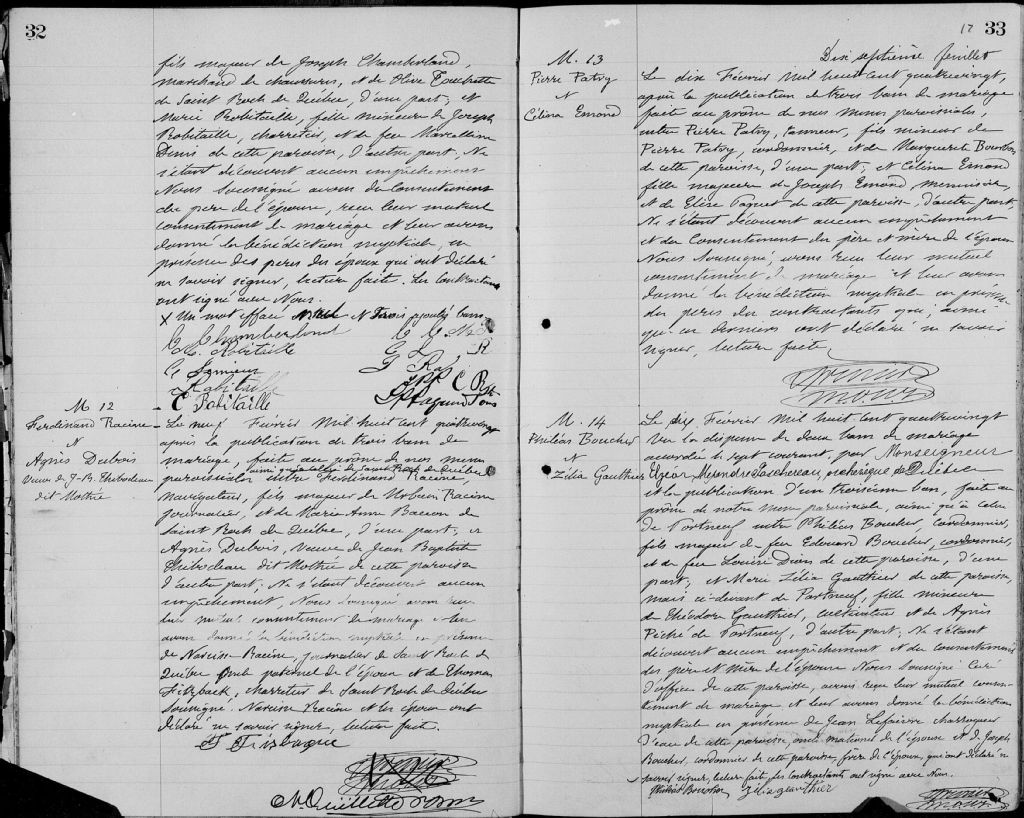 32
fils majeur de Joseph Chamberland,
marchand de chaussures, et de Olive Touchette
de Saint Roch de Québec, d'une part; et
Marie Robitaille, fille mineure de Joseph
Robitaille, charretier, et de feu Marcelline
Denis de cette paroisse, d'autre part, Ne
s'étant découvert aucun empêchement
Nous soussigné avons du consentement
du père de l'épouse, reçu leur mutuel
consentement de mariage et leur avons
donné la bénédiction nuptiale, en
présence des pères des époux qui ont déclaré
ne savoir signer, lecture faite. Les contractants
ont signé avec Nous.
X Un mot effacé et Trois ajoutés bons
Chamberland
Robitaille
Robitaille
C Robitaille
M 12
Ferdinand Racine
&
Agnès Dubois
Veuve de J-B. Thibodeau
dit Mothié
Le neuf Février Mil huit cent quatrevingt
après la publication de trois bans de
mariage, faite au prône de nos messes
ainsi qu'à celles de Saint Roch de Québec
paroissiales entre Ferdinand Racine,
navigateur, fils majeur de Narcisse Racine
journalier, et de Marie Anne
Saint Roch de Québec, d'une part; et
Agnès Dubois, veuve de Jean Baptiste
Thibodeau dit Mothié de cette paroisse
d'autre part; Ne s'étant découvert aucun
empêchement, Nous soussigné avons reçu
leur mutuel consentement de mariage et leur
avons donné la bénédiction nuptiale en présence
de Narcisse Racine, journalier de Saint Roch de
Québec oncle paternel de l'époux et de Thomas
Fitzback, charretier de Saint Roch de Québec
soussigné. Narcisse Racine et les époux ont
déclaré ne savoir signer, lecture faite.
17 33
Dix septième feuillet
M. 13
Pierre Patry
&
Célina Emond
Le dix Février Mil huit cent quatrevingt,
après la publication de trois bans de mariage
faite au prône de nos messes paroissiales,
entre Pierre Patry, tanneur, fils mineur de
Pierre Patry, cordonnier, et de Marguerite Bourbon
de cette paroisse, d'une part; et Célina Emond
fille majeure de Joseph Emond menuisier,
et de Elèse Paquet de cette paroisse, d'autre part;
Ne s'étant découvert aucun empêchement
et du Consentement des père et mère de l'époux
Nous Soussigné, avons reçu leur mutuel
consentement de mariage et leur avons
donné la bénédiction nuptiale en présence
des pères des contractants qui, ainsi
que ces derniers ont déclaré ne savoir
signer, lecture faite.
M. 14
Philéas Boucher
&
Zélia Gauthier
Le dix Février Mil huit cent quatrevingt
Vu la dispense de deux bans de mariage
accordée le sept courant, par Monseigneur
Elzéar Alexandre Taschereau, archevêque de Québec
et la publication d'un troisième ban, faite au
prône de notre messe paroissiale, ainsi qu'à celle
de Portneuf entre Philéas Boucher, Cordonnier,
fils majeur de feu Edouard Boucher, cordonnier,
et de feu Louise Dion de cette paroisse, d'une
part; et Marie Zélia Gauthier de cette paroisse,
mais ci-devant de Portneuf, fille mineure
de Théodore Gauthier, cultivateur et de Agnès
Piché de Portneuf, d'autre part; Ne s'étant
découvert aucun empêchement et du consentement
des père et mère de l'épouse Nous Soussigné Curé
d'office de cette paroisse, avons reçu leur mutuel consen-
tement de mariage et leur avons donné la bénédiction
nuptiale en présence de Jean
d'eau de cette paroisse, oncle maternel de l'épouse et de Joseph
Boucher, cordonnier de cette paroisse, frère de l'époux, qui ont déclaré ne
savoir signer, lecture faite, les Contractants ont signé avec Nous.
Philéas Boucher Zélia gauthier